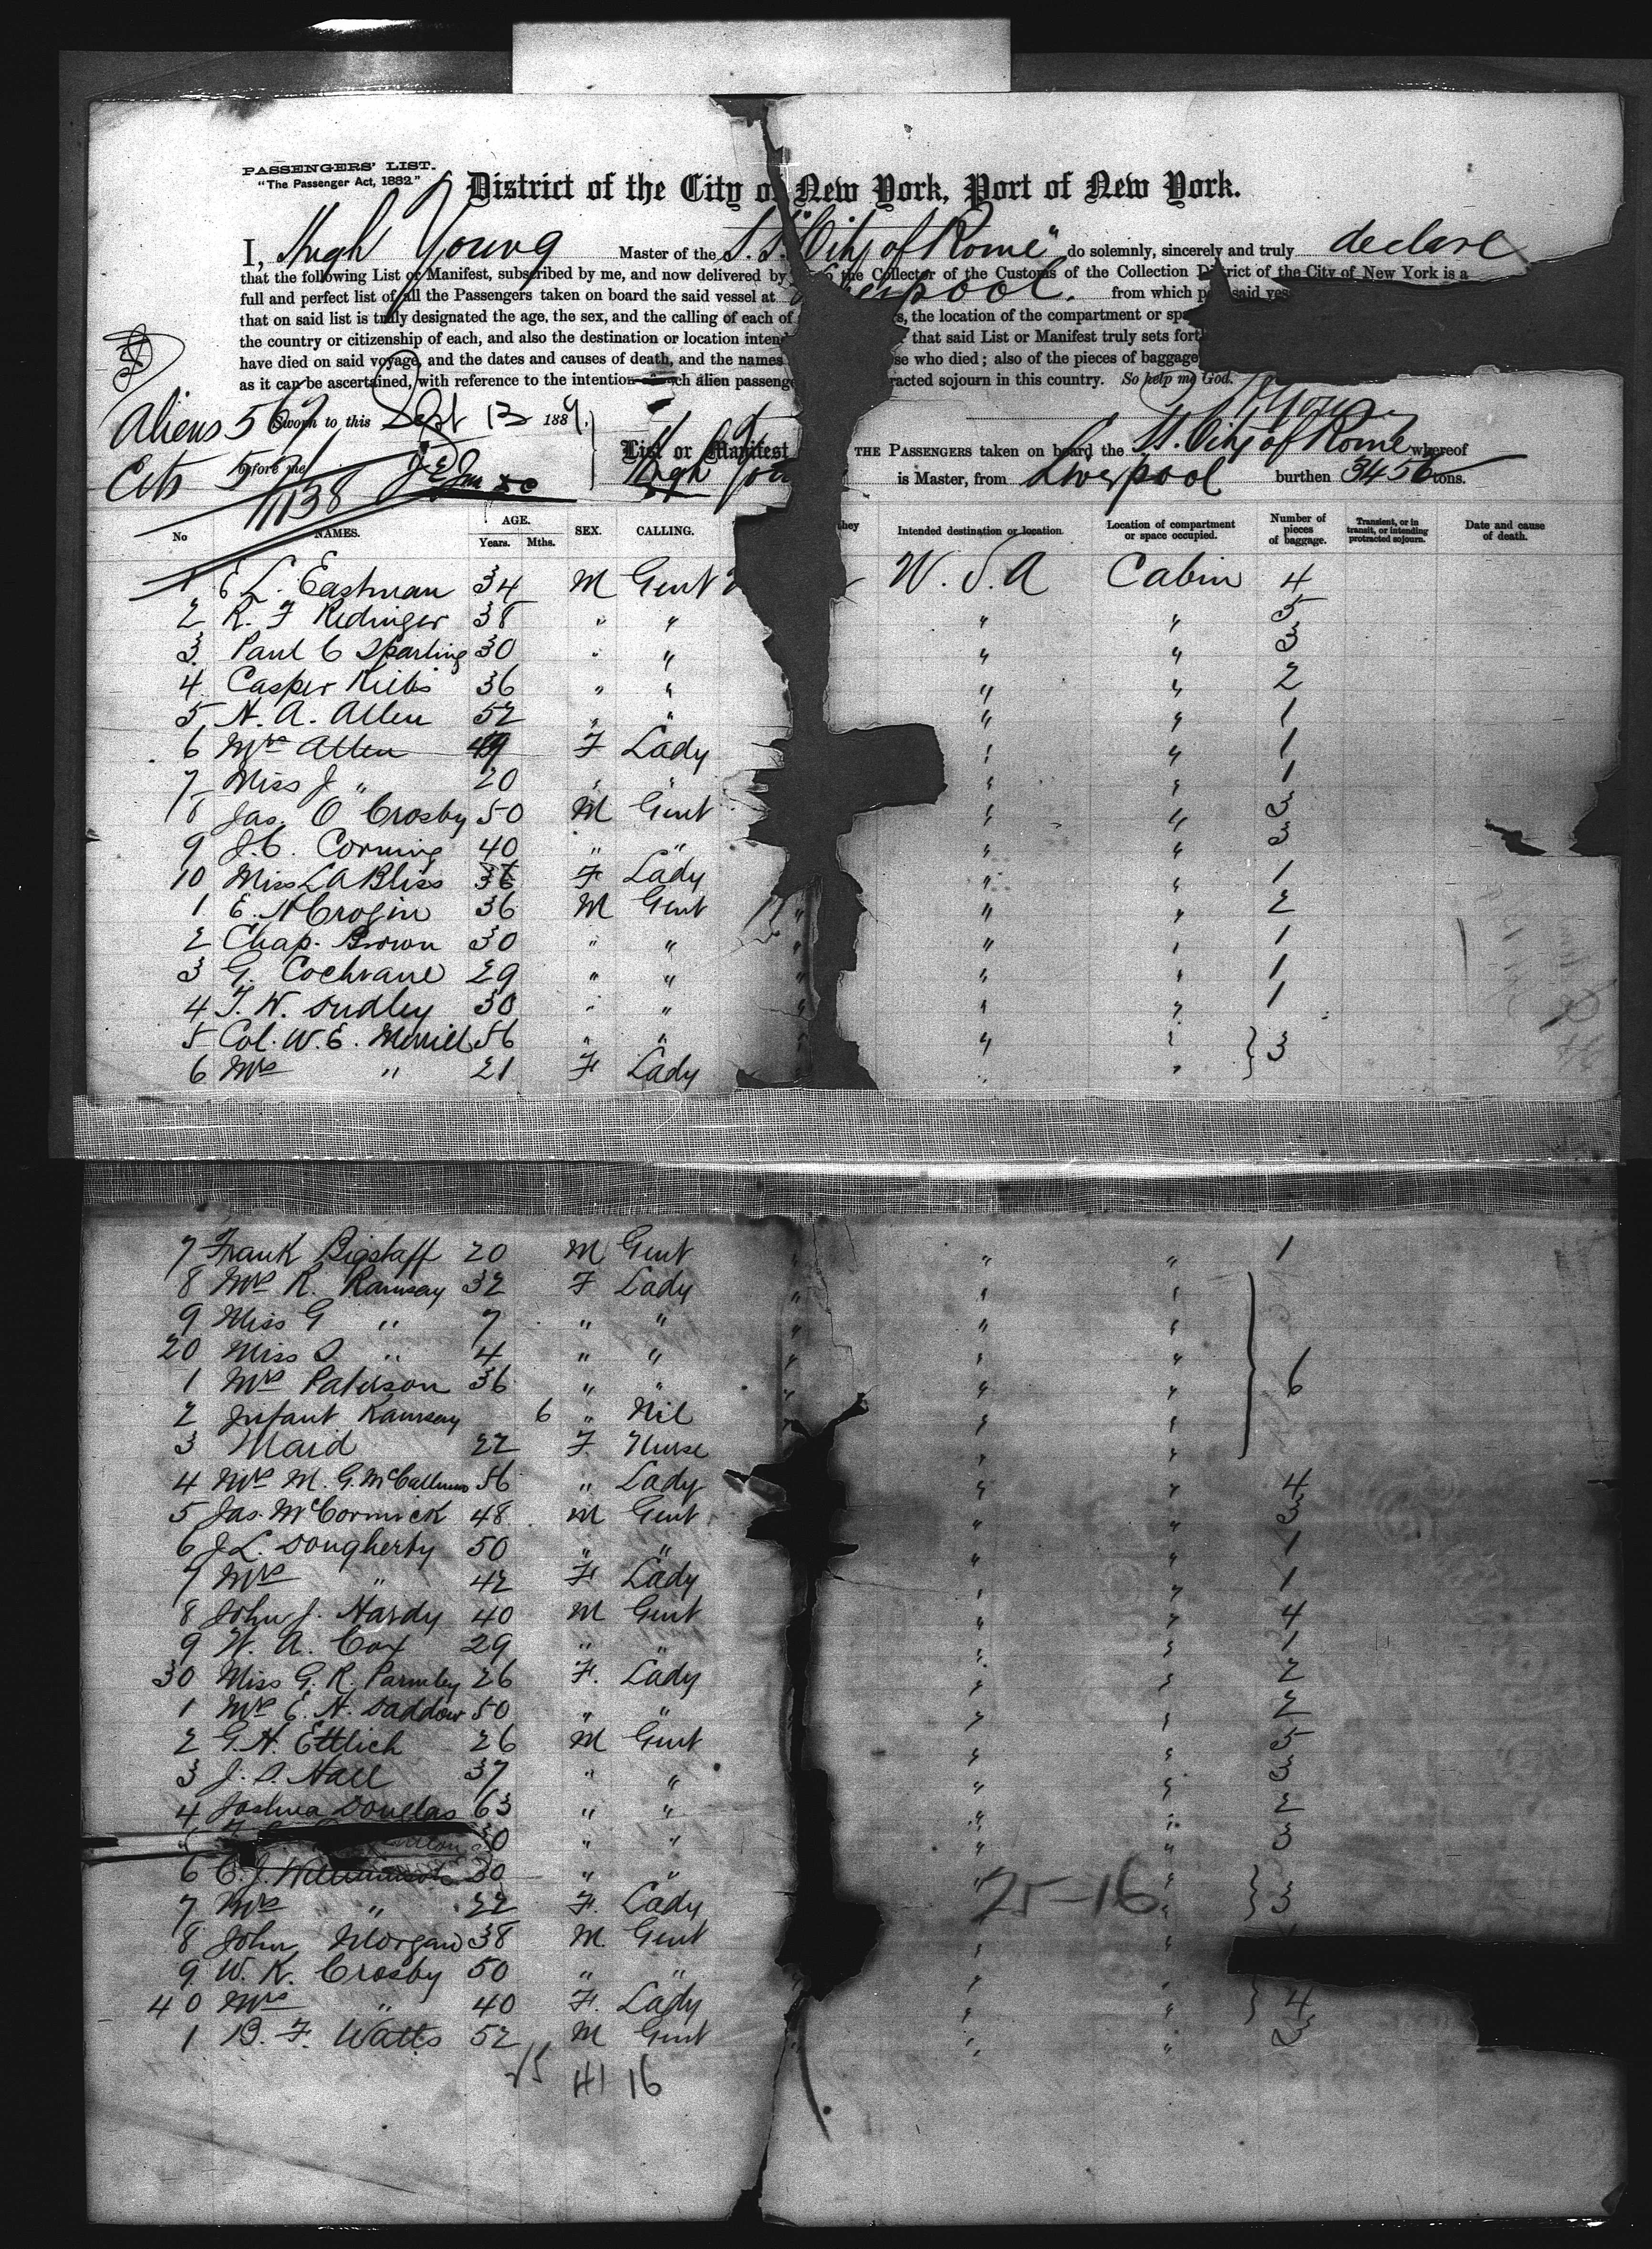 PASSENGERS' LIST.
"The Passenger Act, 1882."
District of the City of New York, Port of New York.
I, Hugh Young Master of the S.S. "City of Rome" do solemnly, sincerely and truly declare
that the following List or Manifest, subscribed by me, and now delivered by the Collector of the Customs of the Collection District of the City of New York is a
full and perfect list of all the Passengers taken on board the said vessel at Liverpool. from which said
that on said list is truly designated the age, the sex, and the calling of each of the location of the compartment or
the country or citizenship of each, and also the destination or location that said List or Manifest truly sets
have died on said voyage, and the dates and causes of death, and the names who died; also of the pieces of baggage
as it can be ascertained, with reference to the intention alien sojourn in this country. So help me God.
Aliens 567 Sworn to this Sept 13 1889.
List or Manifest THE PASSENGERS taken on board the City of Rome whereof
Cits before me Hugh is Master, from Liverpool burthen 3456 tons.
1138
No NAMES. AGE. Years. Mths. SEX. CALLING. they Intended destination or location. Location of compartment or space occupied. Number of pieces of baggage. Transient, or in transit, or intending protracted sojourn. Date and cause of death.
1 E L. Eastman 34 M Gent U.S.A Cabin 4
2 R. F Redinger 38 " " " " 5
3 Paul C Sparling 30 " " " " 3
4 Casper 36 " " " " 2
5 H. A. Allen 52 " " " " 1
6 Mrs Allen 49 F Lady " " 1
7 Miss J " 20 " " " " 1
8 Jas. O Crosby 50 M Gent " " 3
9 J.C. Corning 40 " " " " 3
10 Miss L A Bliss 36 F Lady " " 1
1 E. N Crofin 36 M Gent " " " 2
2 Chap. Brown 30 " " " " " 1
3 G. Cochrane 29 " " " " " 1
4 T. W. Dudley 30 " " " " " 1
5 Col. W. E. Merrill 56 " " " " " } 3
6 Mrs " 21 F Lady " "
7 Frank Bigstaff 20 M Gent " " " 1
8 Mrs R. Ramsay 32 F Lady " " "
9 Miss G " 7 " " " " "
20 Miss " 4 " " " " "
1 Mrs Paterson 36 " " " " " } 6
2 Infant Ramsay 6 " Nil " " "
3 Maid 22 F. Nurse " "
4 Mrs M. G. McCallum 56 " Lady " " 4
5 Jas. McCormick 48 M Gent " " 3
6 J L. Dougherty 50 " " " " 1
7 Mrs " 42 F Lady " " 1
8 John J. Hardy 40 M Gent " " 4
9 W. A. Cox 29 " " " " 1
30 Miss G. R. Parmley 26 F. Lady " " 2
1 Mrs E. H. Daddow 50 " " " " 2
2 G. H. Ettlich 26 M Gent " " 5
3 J. S. Hall 37 " " " " 3
4 Joshua Douglas 63 " " " " 2
5 30 " " " " 3
6 C. J. Williamson 30 " " " "
25-16
7 Mrs " 22 F. Lady " } 3
8 John Morgan 38 M. Gent " "
9 W. K. Crosby 50 " " " "
40 Mrs " 40 F. Lady " " } 4
1 B. F. Watts 52 M Gent " " " 3
25 41 16